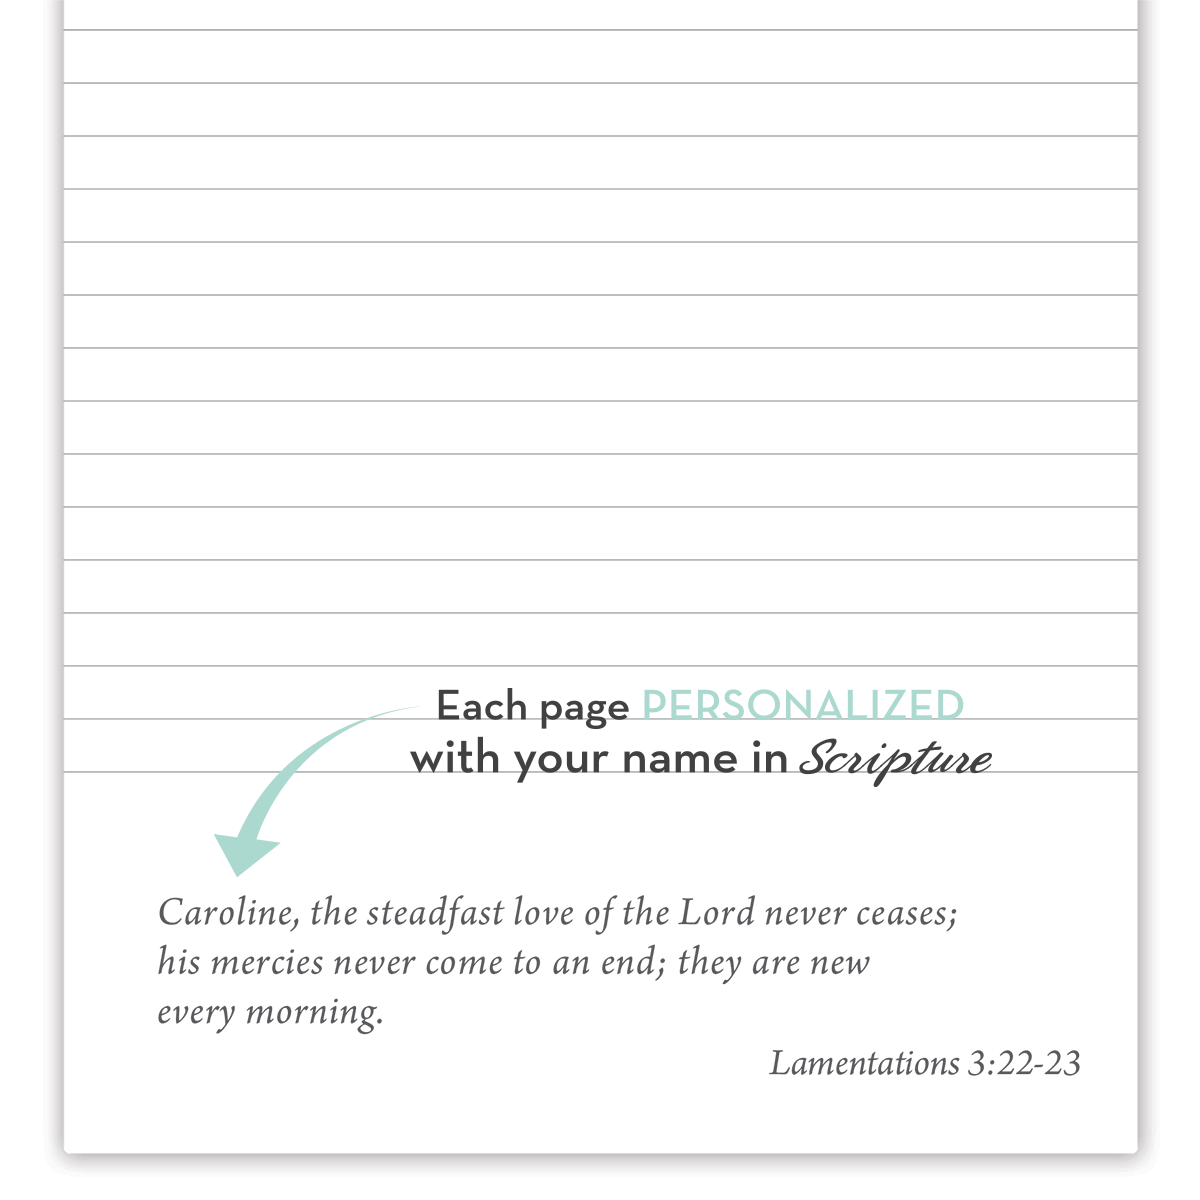 Each page PERSONALIZED
with your name in Scripture
Caroline, the steadfast love of the Lord never ceases;
his mercies never come to an end; they are new
every morning.
Lamentations 3:22-23